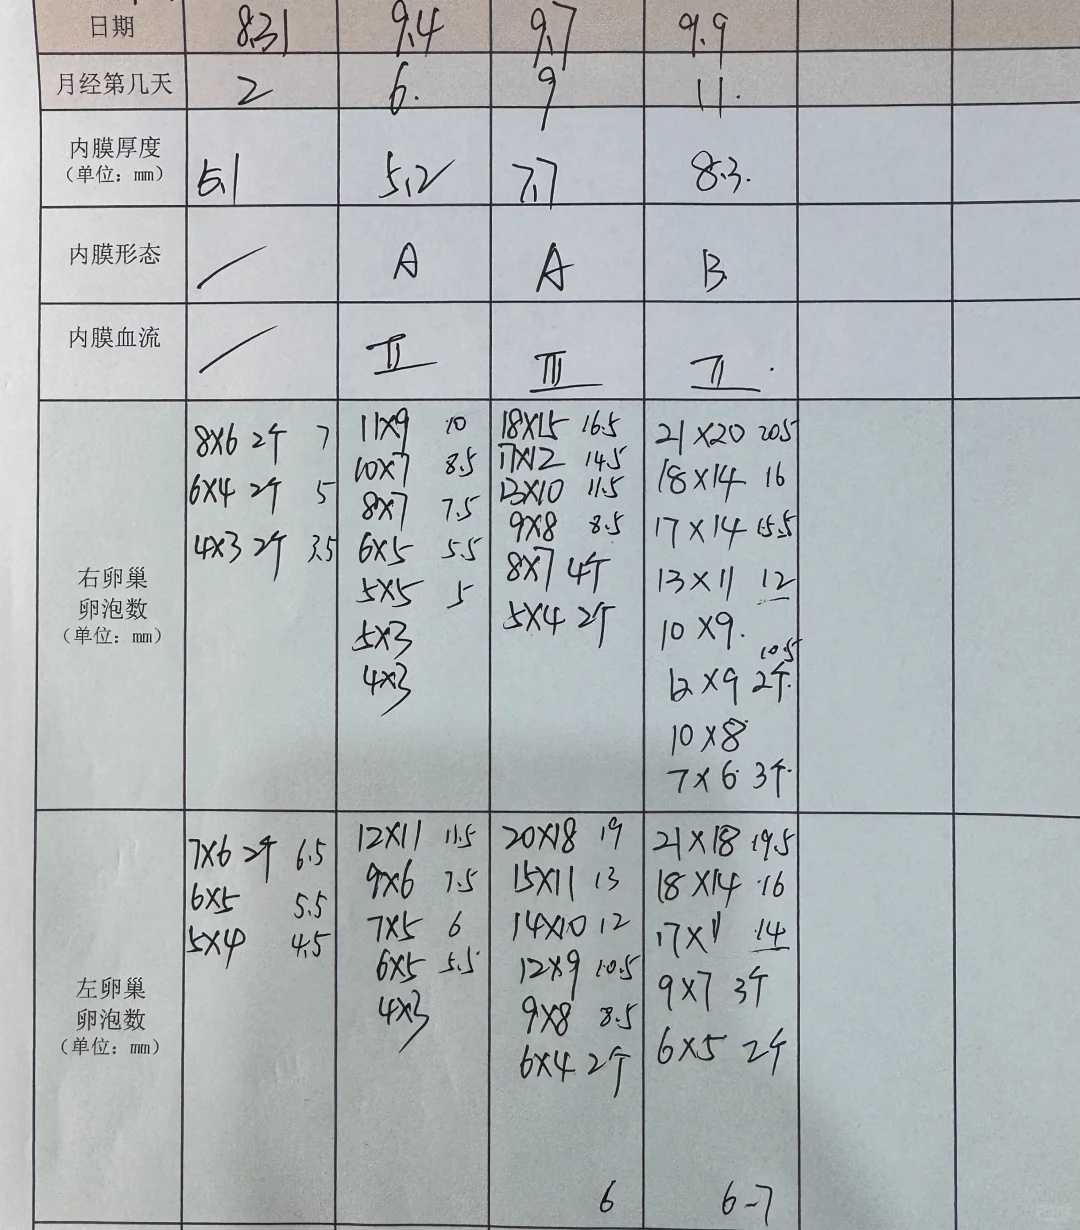 日期 8.31 9.4 9.7 9.9
月经第几天 2 6. 9 11.
内膜厚度
（单位：mm） 5.1 5.2 7.7 8.3.
内膜形态 / A A B
内膜血流 / II III II
右卵巢
卵泡数
（单位：mm）
8×6 2个 7
6×4 2个 5
4×3 2个 3.5
11×9 10
10×7 8.5
8×7 7.5
6×5 5.5
5×5 5
5×3
4×3
18×15 16.5
17×12 14.5
13×10 11.5
9×8 8.5
8×7 4个
5×4 2个
21×20 20.5
18×14 16
17×14 15.5
13×11 12
10×9.
10.5
12×9 2个
10×8
7×6 3个
左卵巢
卵泡数
（单位：mm）
7×6 2个 6.5
6×5 5.5
5×4 4.5
12×11 11.5
9×6 7.5
7×5 6
6×5 5.5
4×3
20×18 19
15×11 13
14×10 12
12×9 10.5
9×8 8.5
6×4 2个
6
21×18 19.5
18×14 16
17×11 14
9×7 3个
6×5 2个
6-7